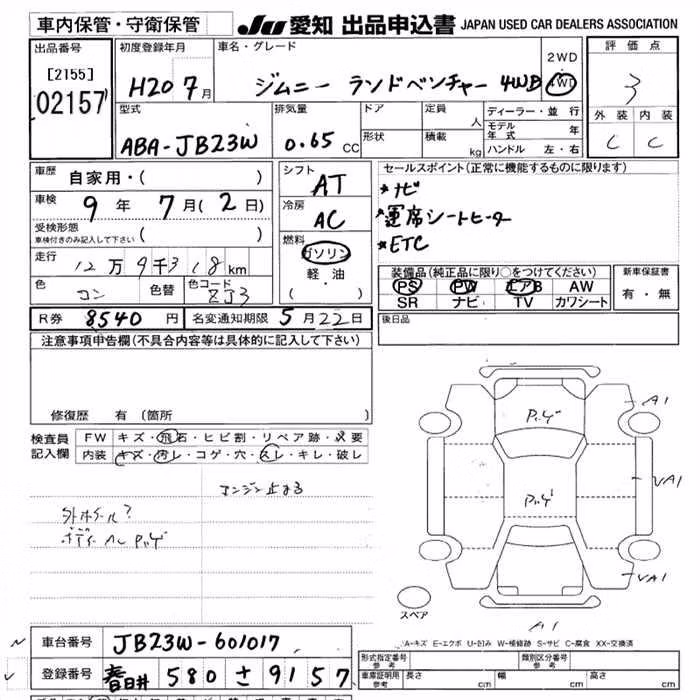 車内保管・守衛保管
JU 愛知 出品申込書 JAPAN USED CAR DEALERS ASSOCIATION
出品番号
[2155]
02157
初度登録年月
H20 7月
車名・グレード
ジムニー ランドベンチャー 4WD
2WD
4WD
評価点
3
外装 内装
C C
型式
ABA-JB23W
排気量
0.65 CC
ドア
形状
定員 人
積載 kg
ディーラー・並行
モデル年式 年
ハンドル 左・右
車歴 自家用・( )
車検 9年 7月(2日)
受検形態
車検付きのみ記入して下さい ( )
走行 12万9千318km
色 コン 色替 色コード ZJ3
シフト
AT
冷房
AC
燃料
ガソリン
軽・油
( )
セールスポイント(正常に機能するものに限ります)
★ナビ
★運席シートヒーター
★ETC
装備品(純正品に限り○をつけてください)
PS PW エアB AW
SR ナビ TV カワシート
新車保証書
有・無
後日品
R券 8540円 名変通知期限 5月22日
注意事項申告欄(不具合内容等は具体的に記入して下さい)
修復歴 有(箇所 )
検査員記入欄
FW キズ・飛石・ヒビ割・リペア跡・X要
内装 キズ・汚レ・コゲ・穴・スレ・キレ・破レ
エンジン止まる
外ホイール?
A1
VA1
VA1
A1
スペア
A-キズ E-エクボ U-凹み W-補修跡 S-サビ C-腐食 XX-交換済
車台番号 JB23W-601017
登録番号 春日井 580 さ 9157
形式指定番号
参考
類別区分番号
参考
車庫証明用
参考
長さ cm 幅 cm 高さ cm